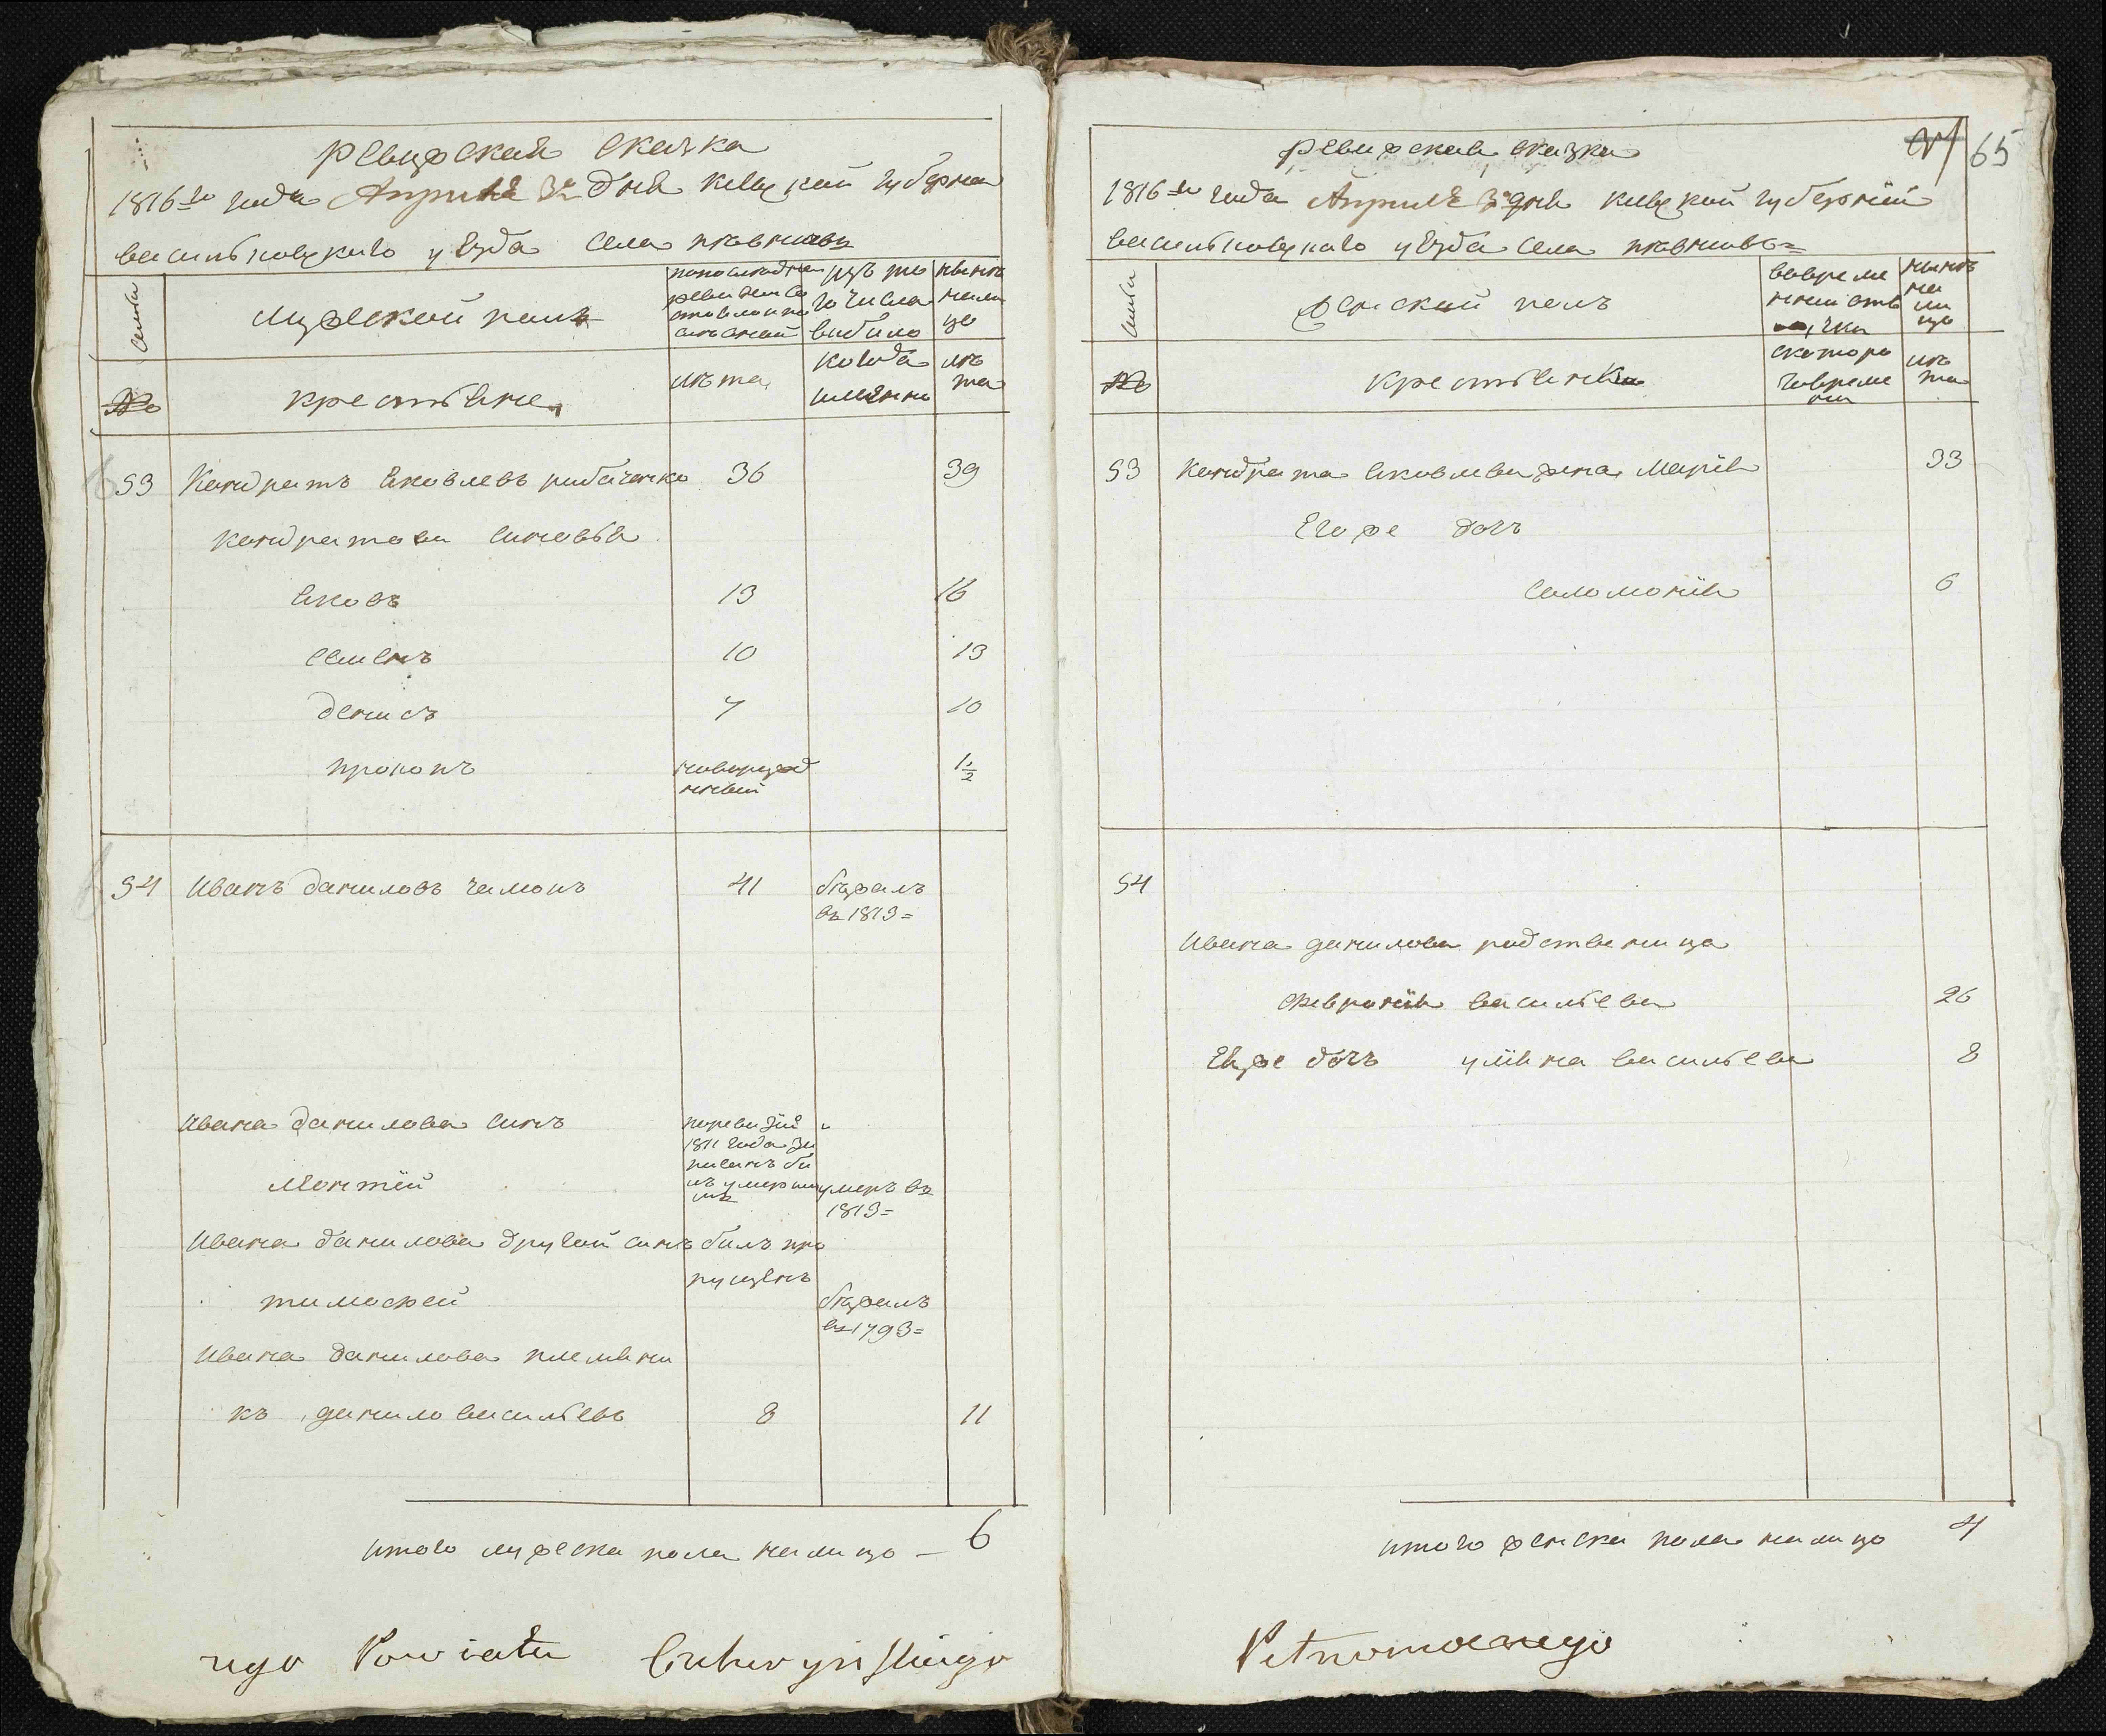 ревизская сказка
1816го года Апреля 3го дня киевской губернии
васильковского уезда села
семьи
мужеской полъ
по последней
ревизии со
стояло и по
изъ то
го числа
выбыло
нынѣ
нали
цо
№
крестьяне
лѣта
когда
именно
лѣ
та
53 Кондратъ Яковлевъ рибаченко 36 39
кондратови синовья
Яковъ 13 16
Семенъ 10 13
денисъ 7 10
прокопъ новорозд
нний 1 1/2
54 Иванъ даниловъ 41 бѣжалъ
въ 1813=
Ивана данилова синъ поревизіи
1811 года за
писанъ би
лъ умерши
мъ
Монтѣй умеръ въ
1813=
Ивана данилова другой синъ билъ про
пущенъ
тимофей бѣжалъ
въ 1793=
Ивана данилова племяни
къ данило васильевъ 8 11
итого мужеска пола налицо — 6
nego Powiatu
ревизская сказка
65
1816го года Апреля 3го дня киевской губернии
васильковского уезда села
семьи
женской полъ
вовреме
нной отл
учки
нынѣ
на
ли
цо
№
крестьянки
скоторо
говреме
ни
лѣ
та
53 Кондрата Яковлева жена Марія 33
Егоже дочъ
Соломонія 6
54
Ивана данилова родственица
Февронія васильева 26
Еяже дочъ уліяна васильева 8
итого женска пола налицо 4